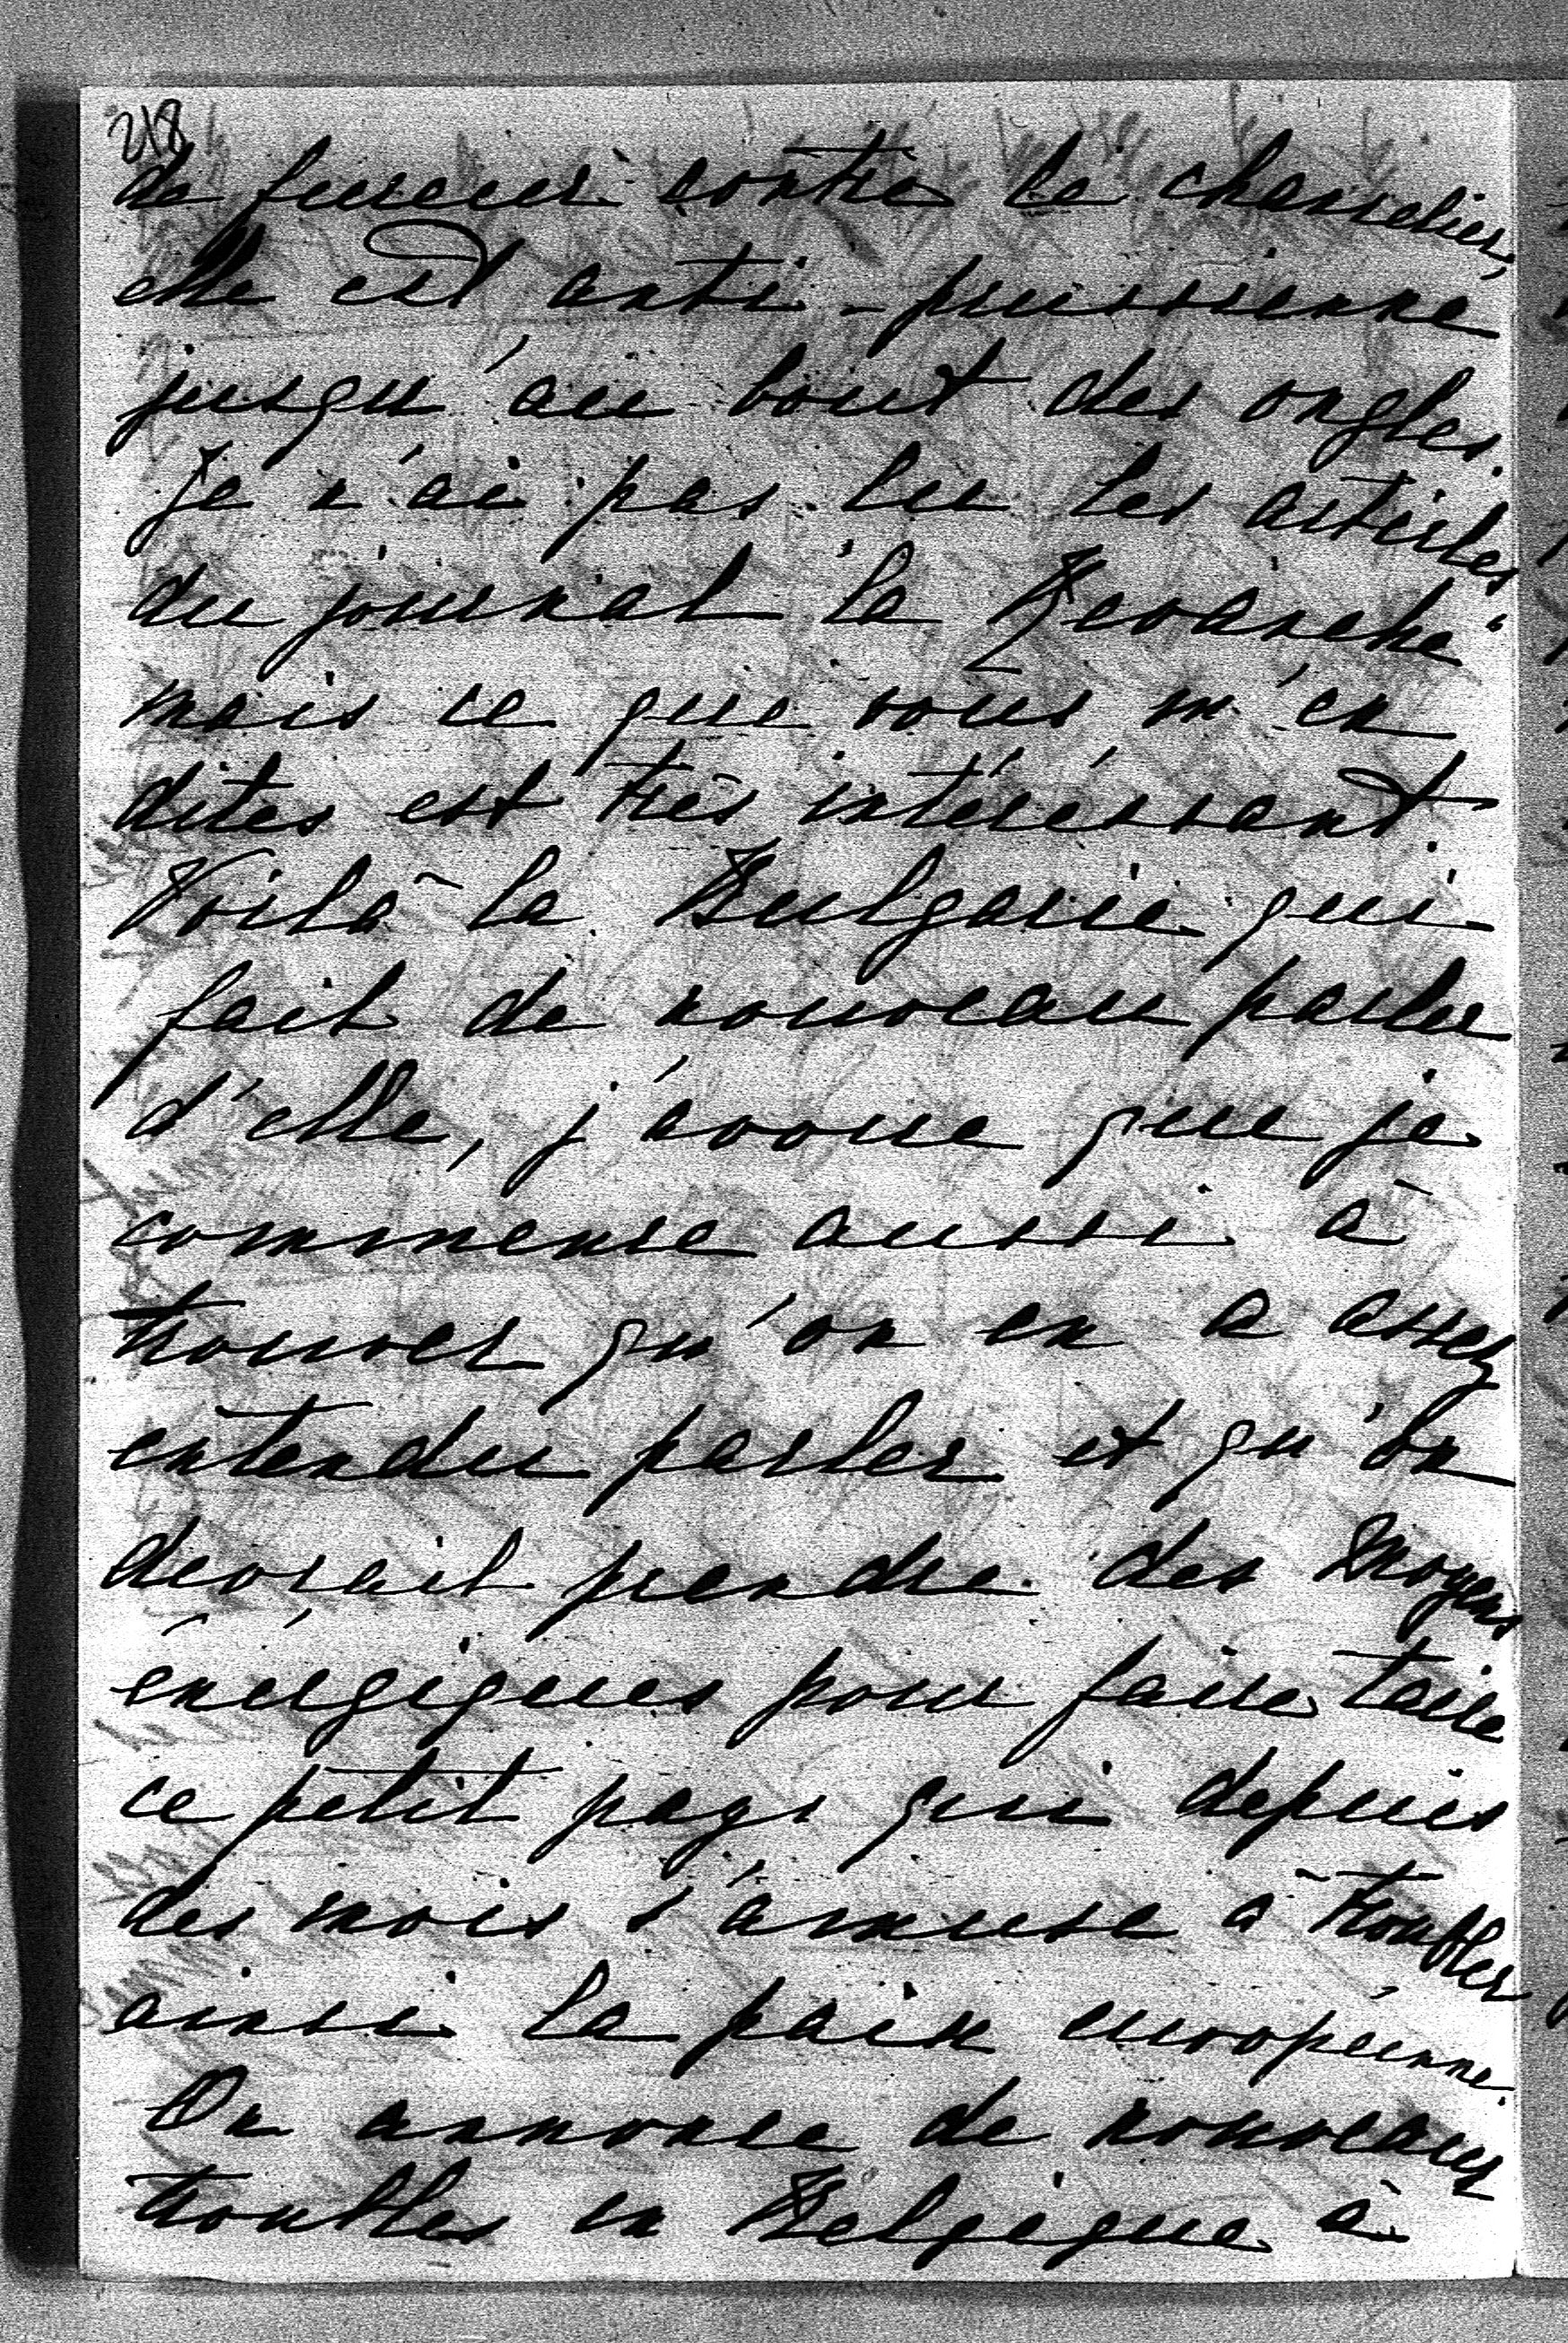 218
de fureur contre le chancelier,
elle est anti-prussienne
jusqu'au bout des ongles.
Je n'ai pas lu les articles
du journal "la Revanche"
mais ce que vous m'en
dites est très intéressant.
Voilà la Bulgarie qui
fait de nouveau parler
d'elle, j'avoue que je
commence aussi à
trouver qu'on en a assez
entendu parler et qu'on
devrait prendre des moyens
énergiques pour faire taire
ce petit pays qui depuis
des mois s'amuse à troubler
ainsi la paix européenne.
On annonce de nouveaux
troubles en Belgique à